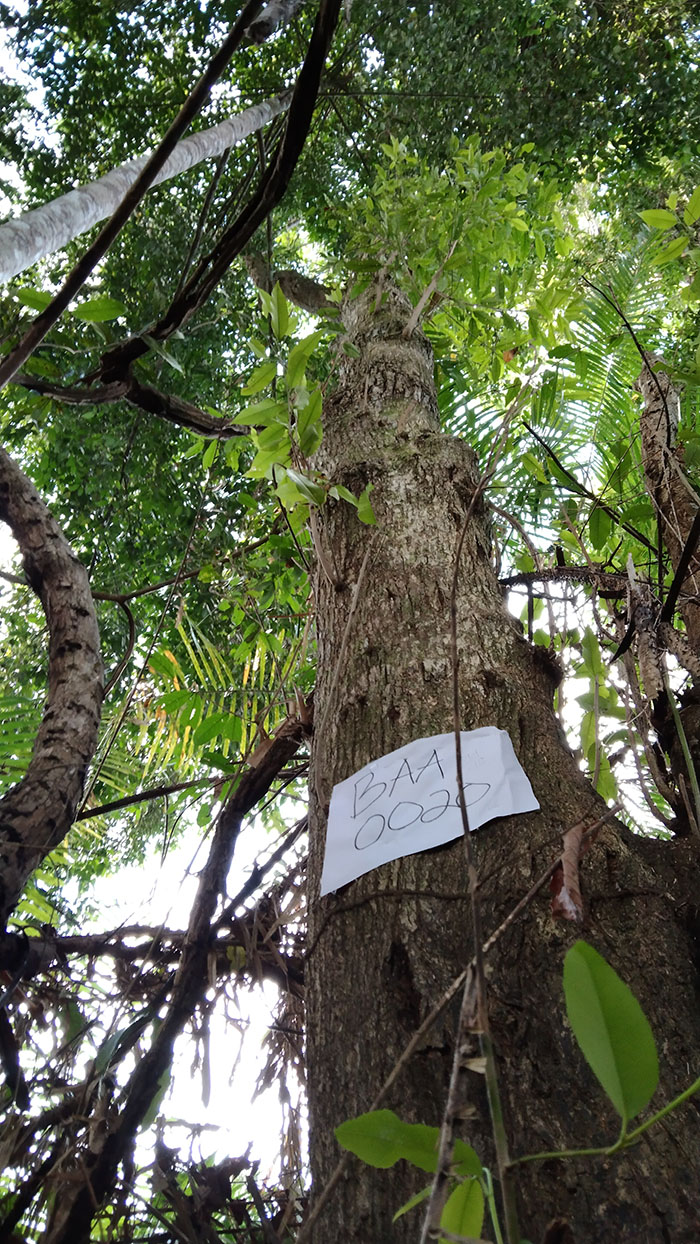 BAA
0020